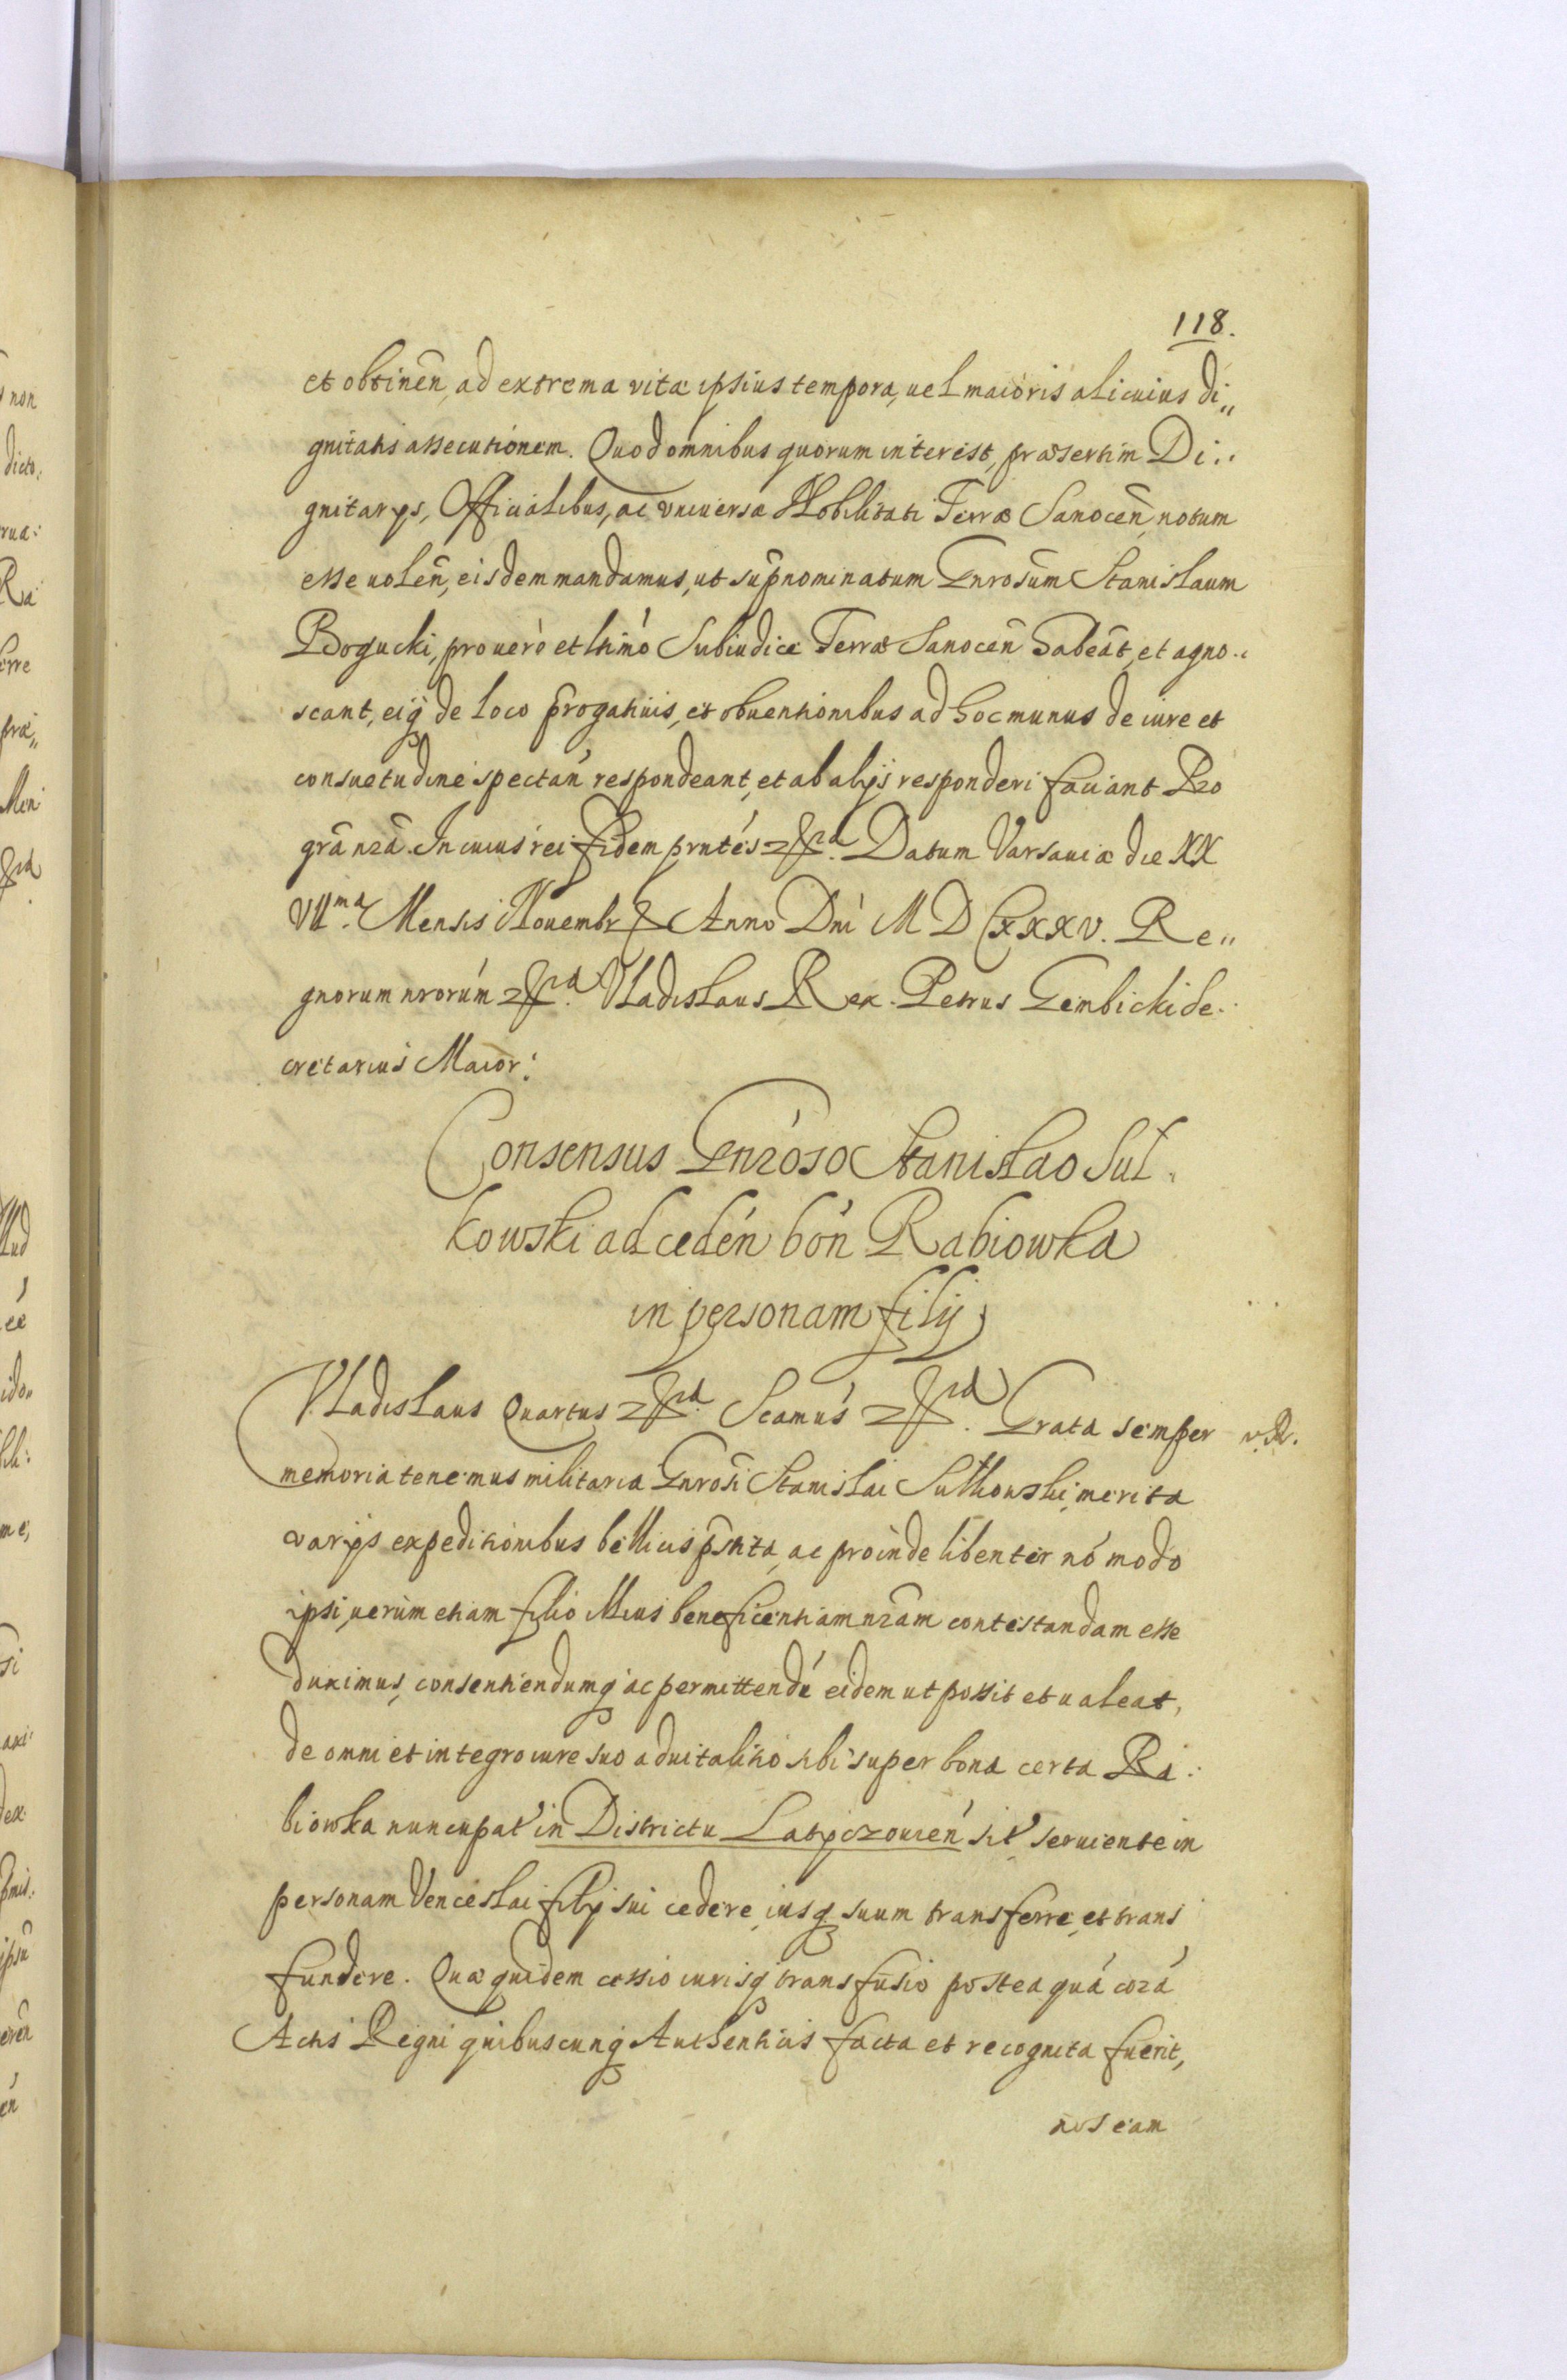 118.
et obtinen̄, ad extrema vitæ ipsius tempora, uel maioris alicuius di„
gnitatis assecutionem. Quod omnibus quorum interest, præsertim Di„
gnitarijs, Officialibus, ac vniuersæ Nobilitati Terræ Sanocen̄ notum
esse uolen̄, eisdem mandamus, ut sup̄nominatum Gnrosūm Stanislaum
Bogucki, pro uero et ltimo Subiudice Terræ Sanocen̄ habeāt, et agno„
scant, eiq́ de loco p̄rogatiuis, et obuentionibus ad hoc munus de iure et
consuetudine spectan̄ respondeant, et ab alijs responderi faciant Pro
grā nrā. In cuius rei fidem prntés etc. Datum Varsauiæ die XX
VIIma. Mensis Nouembr Anno Dni M D CXXXV. Re„
gnorum nrorúm etc. Vladislaus Rex. Petrus Gembicki Se„
cretarius Maior:
Consensus Gnroso Stanislao Sul„
kowski ad cedén bón Rabiowka
in personam filij
Vladislaus Quartus etc. Scamús etc. Grata semper v. R.
memoria tenemus militaria Gnrosi Stanislai Sulkowski, merita
varijs expeditionibus bellicis p̄stita, ac proinde libenter nó modo
ipsi, uerum etiam filio illius beneficentiam nrām contestandam esse
duximus, consentiendumq́ ac permittendú eidem ut possit et ualeat,
de omni et integro iure suo aduitalitio sibi super bona certa Ra„
biowka nuncupat in Districtu Latyczouien̄ sit seruiente in
personam Venceslai filij sui cedere, iusq́ suum transferre, et trans
fundere. Quæ quidem cessio iurisq́ transfusio postea quá corá
Actis Regni quibuscunq́ Authenticis facta et recognita fuerit,
nos eam